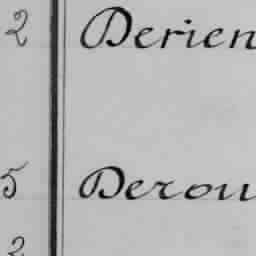 2 Derien
5 Derou
2